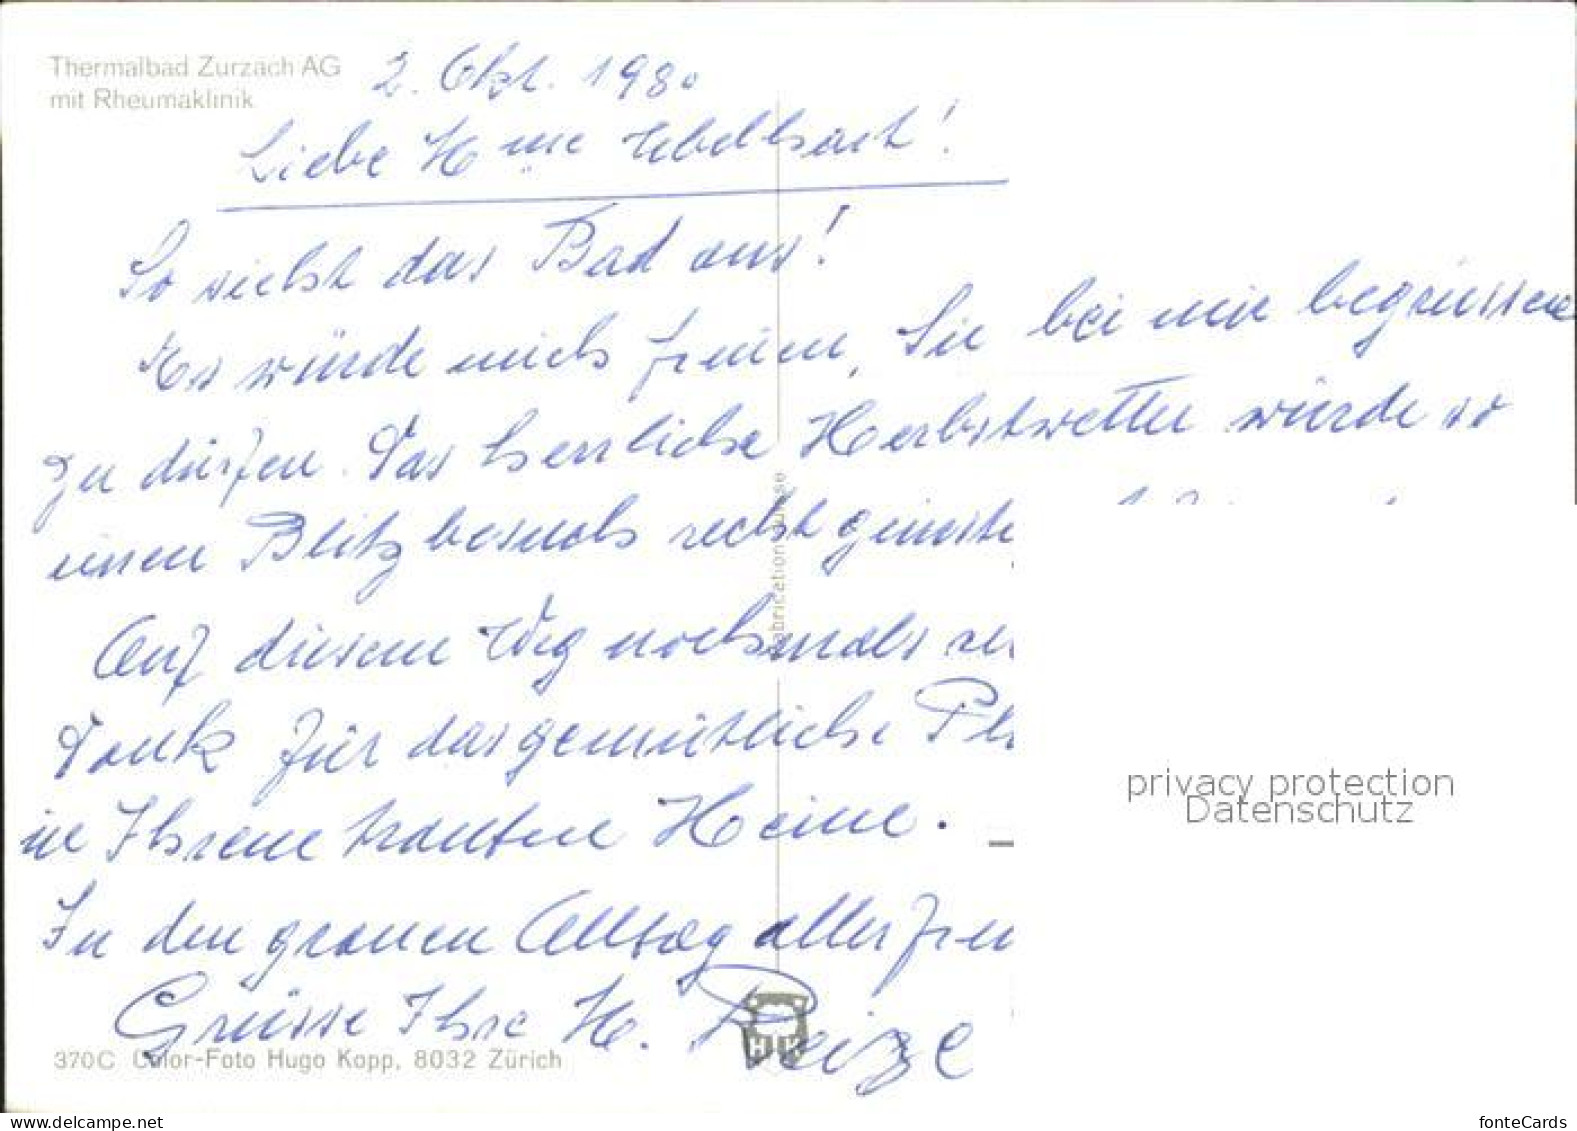 Thermalbad Zurzach AG
mit Rheumaklinik
2. Okt. 1980
Liebe
So sieht das Bad aus!
Es würde mich freuen, Sie bei mir begrüssen
zu dürfen. Das herrliche Herbstwetter würde so
einen Blitzbesuch recht günstig
Auf diesem Weg nochmals
Dank für das gemütliche
in Ihrem trauten Heime.
In den grauen Alltag aller
Grüsse Ihre H.
370C Color-Foto Hugo Kopp, 8032 Zürich
HK
Fabrication suisse
privacy protection
Datenschutz
www.delcampe.net
fonteCards